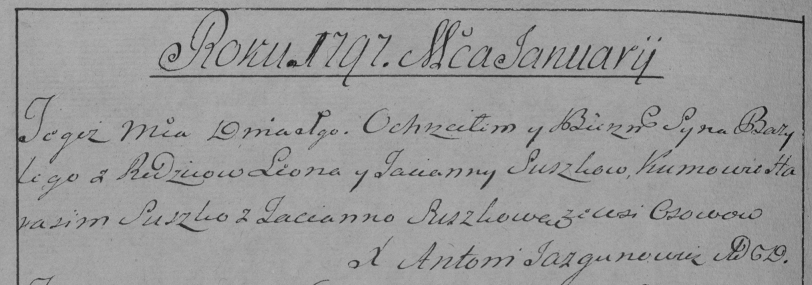 Roku 1797. Mča Januarij
Tegoż Mča Dnia 1go. Ochrzciłem y Bierzm Syna Bazy
lego z Rodzicow Leona y Tacianny Suszkow, Kumowie Ha
rasim Suszko z Tacianno Suszkowa ze wsi Osowow
X Antoni Jazgunowicz